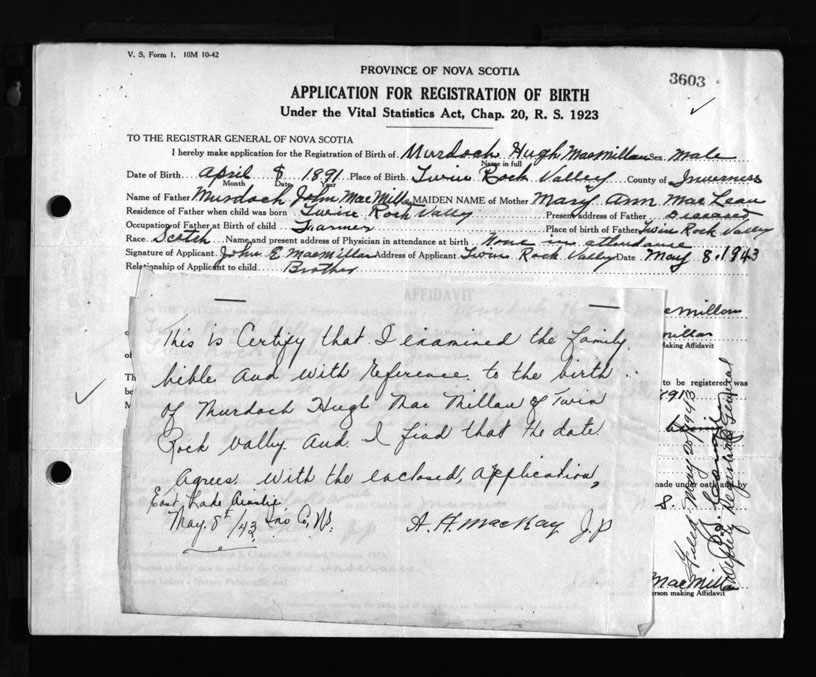 V. S. Form 1. 10M 10-42
PROVINCE OF NOVA SCOTIA
3603
APPLICATION FOR REGISTRATION OF BIRTH
Under the Vital Statistics Act, Chap. 20, R. S. 1923
TO THE REGISTRAR GENERAL OF NOVA SCOTIA
I hereby make application for the Registration of Birth of Murdoch Hugh MacMillan Sex Male
Name in full
Date of Birth April 8 1891 Place of Birth Twin Rock Valley County of Inverness
Month Date Year
Name of Father Murdoch John MacMillan MAIDEN NAME of Mother Mary Ann MacLean
Residence of Father when child was born Twin Rock Valley Present address of Father deceased
Occupation of Father at Birth of child Farmer Place of birth of Father Twin Rock Valley
Race Scotch Name and present address of Physician in attendance at birth None in attendance
Signature of Applicant John E MacMillan Address of Applicant Twin Rock Valley Date May 8, 1943
Relationship of Applicant to child Brother
AFFIDAVIT
This is Certify that I examined the family
bible and with reference to the birth
of Murdoch Hugh MacMillan of Twin
Rock Vally and I find that the date
agrees with the enclosed application,
East Lake Ainslie
May. 8th/43 Inv Co, N.S.
A. H. MacKay J.P
making Affidavit
to be registered was
made under oath and by
S.
MacMillan
person making Affidavit
Filed May 20/1943
Deputy Registrar General